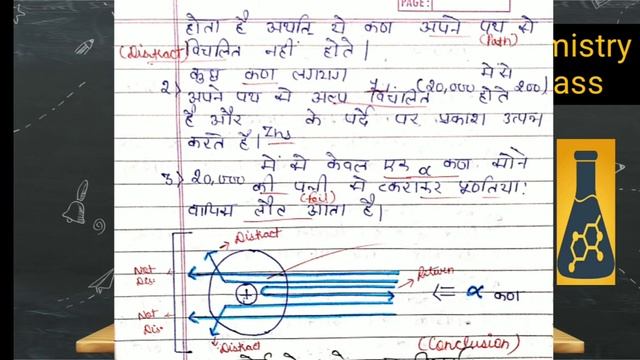 PAGE:
होता है अर्थात ये कण अपने पथ से
(Path)
(Distract) विचलित नहीं होते।
कुछ कण लगभग (20,000 में से
2) अपने पथ से अल्प विचलित होते 200)
है और के पर्दे पर प्रकाश उत्पन्न
करते है। Zns
3) 20,000 में से केवल एक α कण सोने
की पन्नी से टकराकर पूर्णतया:
(foil)
वापिस लौट आता है।
mistry
ass
Distract
Not
Des.
Return
+
⇐ α कण
Not
Dis.
Distract
(Conclusion)